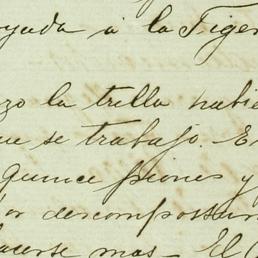 yada á la Tiger
zo la trilla habie
ue se trabajo. E
quince piones y
or descompostur
acerse mas - El